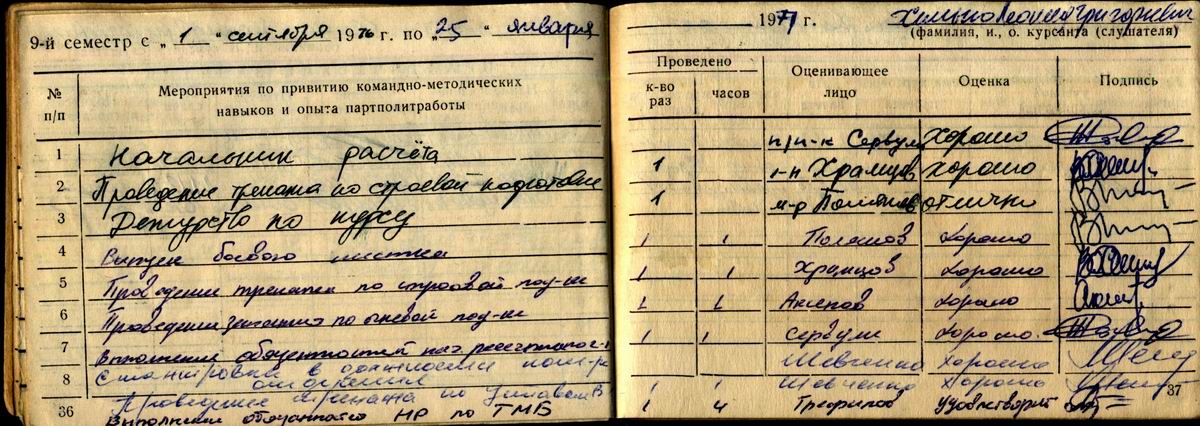 9-й семестр с „ 1 “ сентября 1976 г. по „ 25 “ января
№ п/п
Мероприятия по привитию командно-методических
навыков и опыта партполитработы
1 Начальник расчёта
2 Проведение тренажа по строевой подготовке
3 Дежурство по курсу
4 Выпуск боевого листка
5 Проведение тренажа по строевой под-ке
6 Проведение занятия по огневой под-ке
7 Выполнение обязанностей
8 Стажировка в должности ком-ра
отделения
Проведение тренажа по уставам В
Выполнение обязанностей НР по ТМБ
36
1977 г. Григорьевич
(фамилия, и., о. курсанта (слушателя)
Проведено
к-во раз
часов
Оценивающее лицо
Оценка
Подпись
п/п-к Сервули Хорошо
1 к-н Храмцов хорошо
1 м-р отлично
1 1 Хорошо
1 1 Храмцов Хорошо
1 1 Аксенов Хорошо
1 1 Сервули Хорошо
Шевченко Хорошо
1 1 Шевченко Хорошо
1 4 Трофимов удовлетворит
37